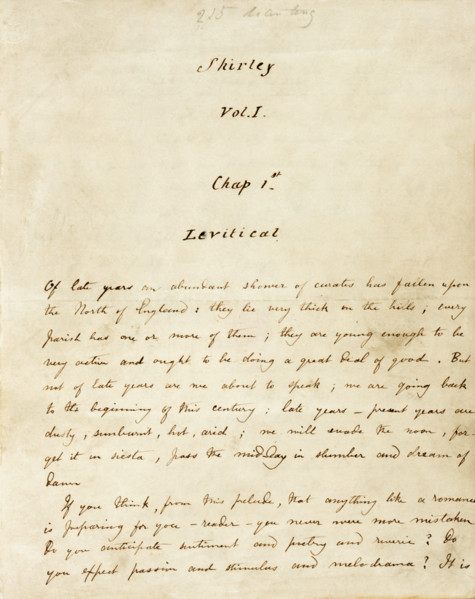 215
Shirley
Vol. I.
Chap 1st
Levitical.
Of late years an abundant shower of curates has fallen upon
the North of England: they lie very thick on the hills; every
Parish has one or more of them; they are young enough to be
very active and ought to be doing a great deal of good. But
not of late years are we about to speak; we are going back
to the beginning of this century: late years – present years are
dusty, sunburnt, hot, arid; we will evade the noon, for-
get it in siesta, pass the mid-day in slumber and dream of
dawn
If you think, from this prelude, that anything like a romance
is preparing for you – reader – you never were more mistaken.
Do you anticipate sentiment and poetry and reverie? Do
you expect passion and stimulus and melodrama? It is